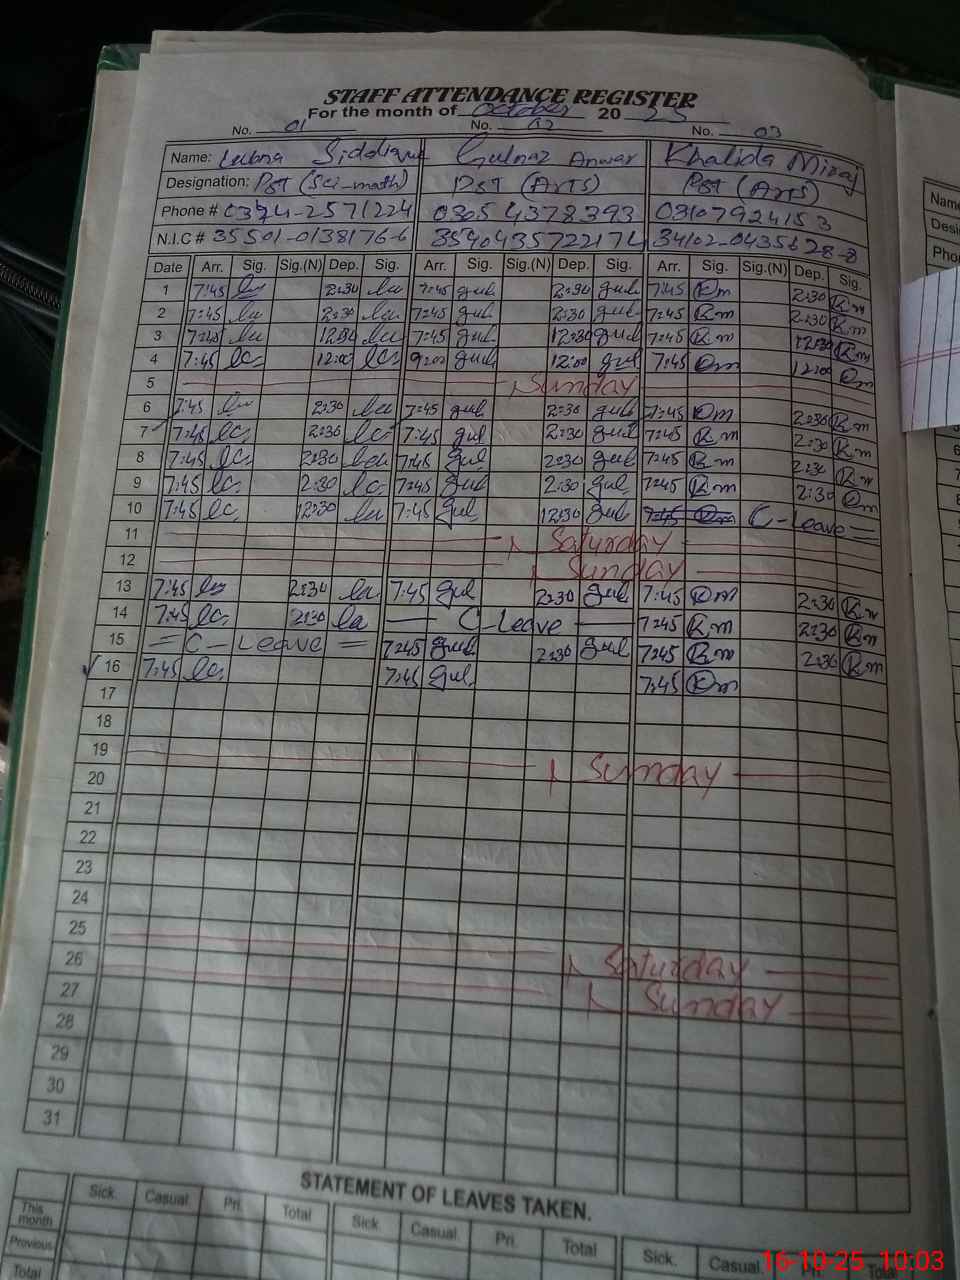 STAFF ATTENDANCE REGISTER
For the month of October 2025
No. 01 No. 02 No. 03
Name: Lubna Siddique Gulnaz Anwar Khalida Miraj
Designation: PST (Sci-math) PST (Arts) PST (Arts)
Phone # 0324-2571224 0305 4378393 03107924153
N.I.C # 35501-0138176-6 34102-0435628-8
Date Arr. Sig. Sig.(N) Dep. Sig. Arr. Sig. Sig.(N) Dep. Sig. Arr. Sig. Sig.(N) Dep. Sig.
1 7:45 lu 2:30 lu 7:45 gul 2:30 gul 7:45 Km 2:30 Km
2 7:45 lu 2:30 lu 7:45 gul 2:30 gul 7:45 Km 2:30 Km
3 7:45 lu 12:30 lu 7:45 gul 12:30 gul 7:45 Km 12:30 Km
4 7:45 12:00 9:00 gul 12:00 gul 7:45 Km 12:00 Km
5 Sunday
6 7:45 lu 2:30 lu 7:45 gul 2:30 gul 7:45 Km 2:30 Km
7 7:45 2:30 7:45 gul 2:30 gul 7:45 Km 2:30 Km
8 7:45 2:30 7:45 gul 2:30 gul 7:45 Km 2:30 Km
9 7:45 2:30 7:45 gul 2:30 gul 7:45 Km 2:30 Km
10 7:45 12:30 lu 7:45 gul 12:30 gul 7:45 Km C-Leave =
11 Saturday
12 Sunday
13 7:45 2:30 7:45 gul 2:30 gul 7:45 Km 2:30 Km
14 7:45 2:30 — C-Leave — 7:45 Km 2:30 Km
15 = C-Leave = 7:45 gul 2:30 gul 7:45 Km 2:30 Km
16 7:45 7:45 gul 7:45 Km
17
18
19
20 Sunday
21
22
23
24
25
26 Saturday
27 Sunday
28
29
30
31
STATEMENT OF LEAVES TAKEN.
Sick. Casual. Pri. Total Sick. Casual. Pri. Total Sick. Casual.
This month
Previous
Total
Name
Phone
16-10-25 10:03